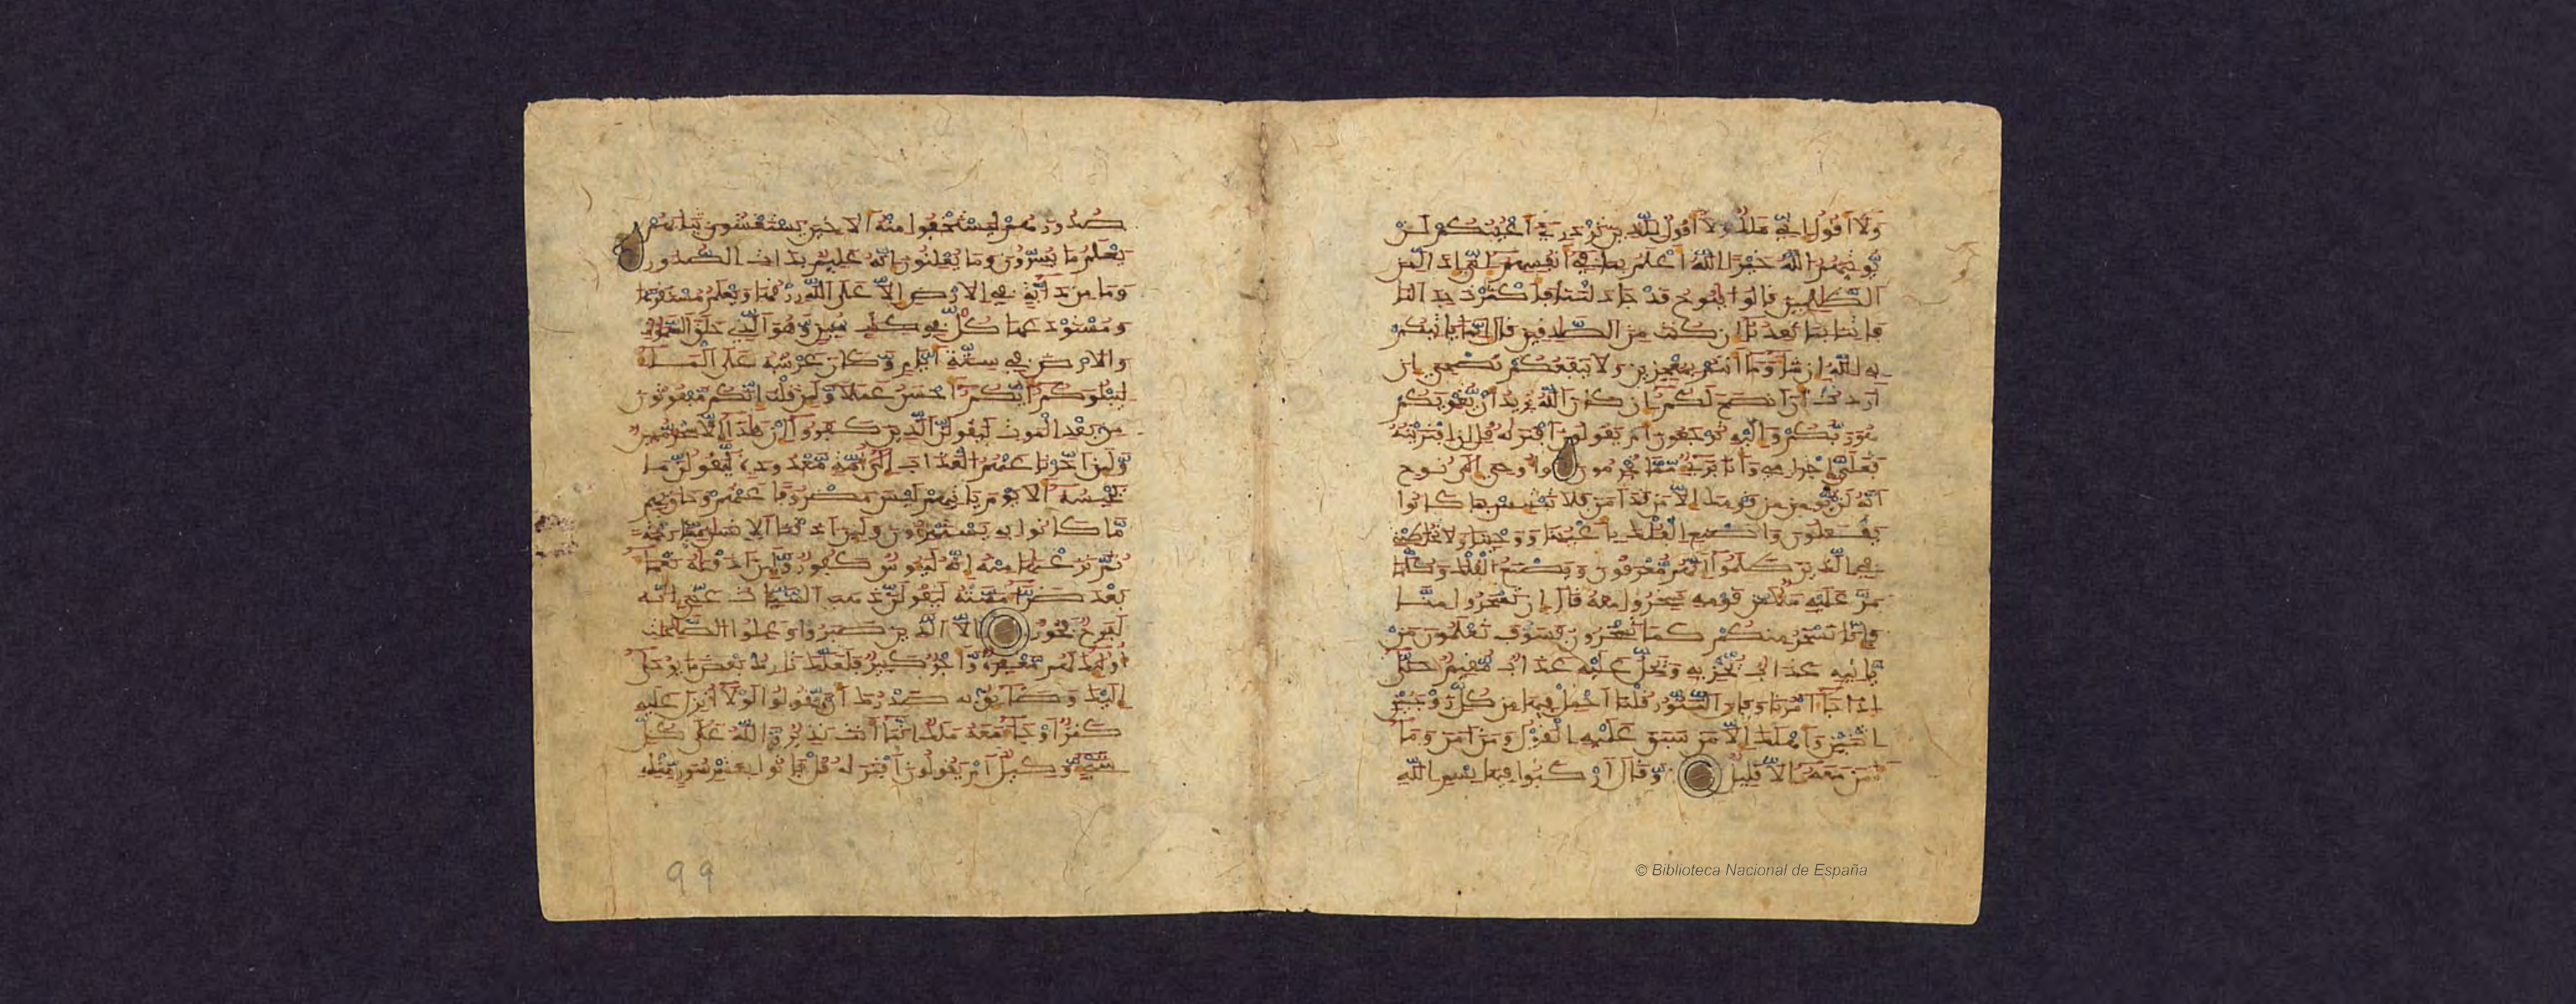 ولا أقول إني ملك ولا أقول للذين تزدري أعينكم لن
يوتيهم الله خيرا الله أعلم بما في أنفسهم إني إذا لمن
الظلمين قالوا ينوح قد جدلتنا فأكثرت جدالنا
فاتنا بما تعدنا إن كنت من الصدقين قال إنما ياتيكم
به الله إن شاء وما أنتم بمعجزين ولا ينفعكم نصحي إن
أردت أن أنصح لكم إن كان الله يريد أن يغويكم
هو ربكم وإليه ترجعون أم يقولون افتريه قل إن افتريته
فعلي إجرامي وأنا بريء مما تجرمون وأوحي إلى نوح
أنه لن يومن من قومك إلا من قد امن فلا تبتئس بما كانوا
يفعلون واصنع الفلك بأعيننا ووحينا ولا تخطبني
في الذين ظلموا إنهم مغرقون ويصنع الفلك وكلما
مر عليه ملأ من قومه سخروا منه قال إن تسخروا منا
فإنا نسخر منكم كما تسخرون فسوف تعلمون من
ياتيه عذاب يخزيه ويحل عليه عذاب مقيم حتى
إذا جاء أمرنا وفار التنور قلنا احمل فيها من كل زوجين
اثنين وأهلك إلا من سبق عليه القول ومن امن وما
امن معه إلا قليل وقال اركبوا فيها بسم الله
© Biblioteca Nacional de España
صدورهم ليستخفوا منه ألا حين يستغشون ثيابهم
يعلم ما يسرون وما يعلنون إنه عليم بذات الصدور
وما من دابة في الارض إلا على الله رزقها ويعلم مستقرها
ومستودعها كل في كتب مبين وهو الذي خلق السموت
والارض في ستة أيام وكان عرشه على الماء
ليبلوكم أيكم أحسن عملا ولئن قلت إنكم مبعوثون
من بعد الموت ليقولن الذين كفروا إن هذا إلا سحر مبين
ولئن أخرنا عنهم العذاب إلى أمة معدودة ليقولن ما
يحبسه ألا يوم ياتيهم ليس مصروفا عنهم وحاق بهم
ما كانوا به يستهزءون ولئن أذقنا الانسن منا رحمة
ثم نزعنها منه إنه ليئوس كفور ولئن أذقنه نعماء
بعد ضراء مسته ليقولن ذهب السيئات عني إنه
لفرح فخور إلا الذين صبروا وعملوا الصلحت
أولئك لهم مغفرة وأجر كبير فلعلك تارك بعض ما يوحى
إليك وضائق به صدرك أن يقولوا لولا أنزل عليه
كنز أو جاء معه ملك إنما أنت نذير والله على كل
شيء وكيل أم يقولون افتريه قل فاتوا بعشر سور مثله
99